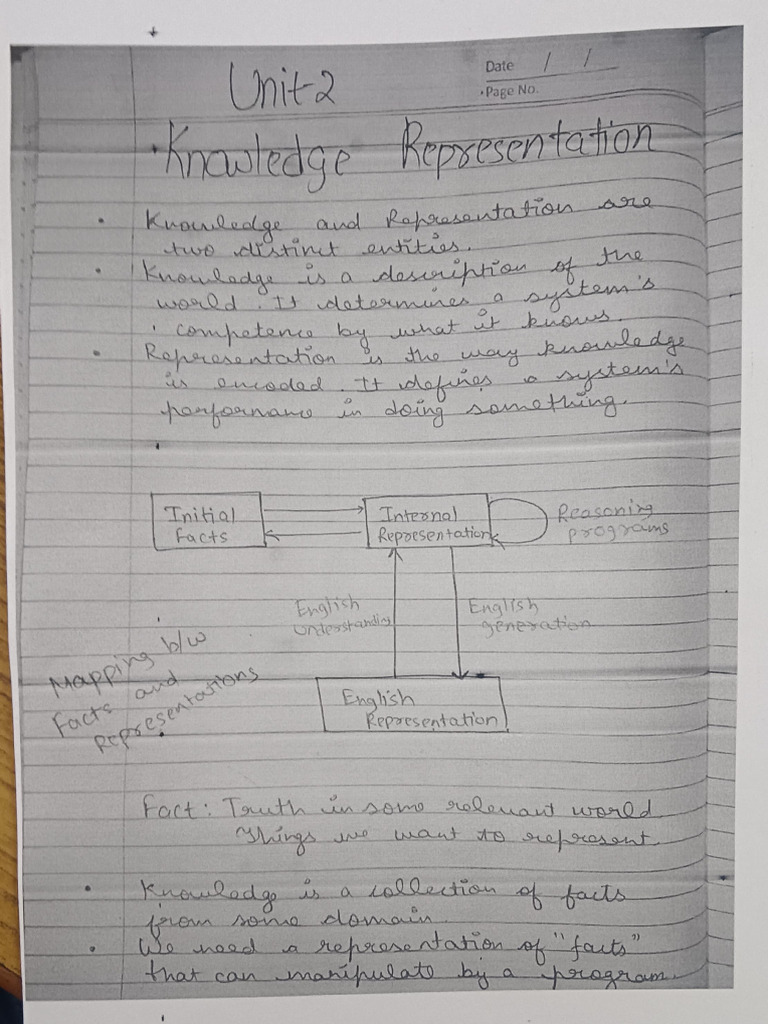 Date / /
Page No.
Unit-2
Knowledge Representation
• Knowledge and Representation are
two distinct entities.
• Knowledge is a description of the
world. It determines a system's
competence by what it knows.
• Representation is the way knowledge
is encoded. It defines a system's
performance in doing something.
Initial
Facts
Internal
Representation
Reasoning
programs
English
Understanding
English
generation
Mapping b/w
Facts and
Representations
English
Representation
Fact: Truth in some relevant world
Things we want to represent.
• Knowledge is a collection of facts
from some domain.
• We need a representation of "facts"
that can manipulate by a program.